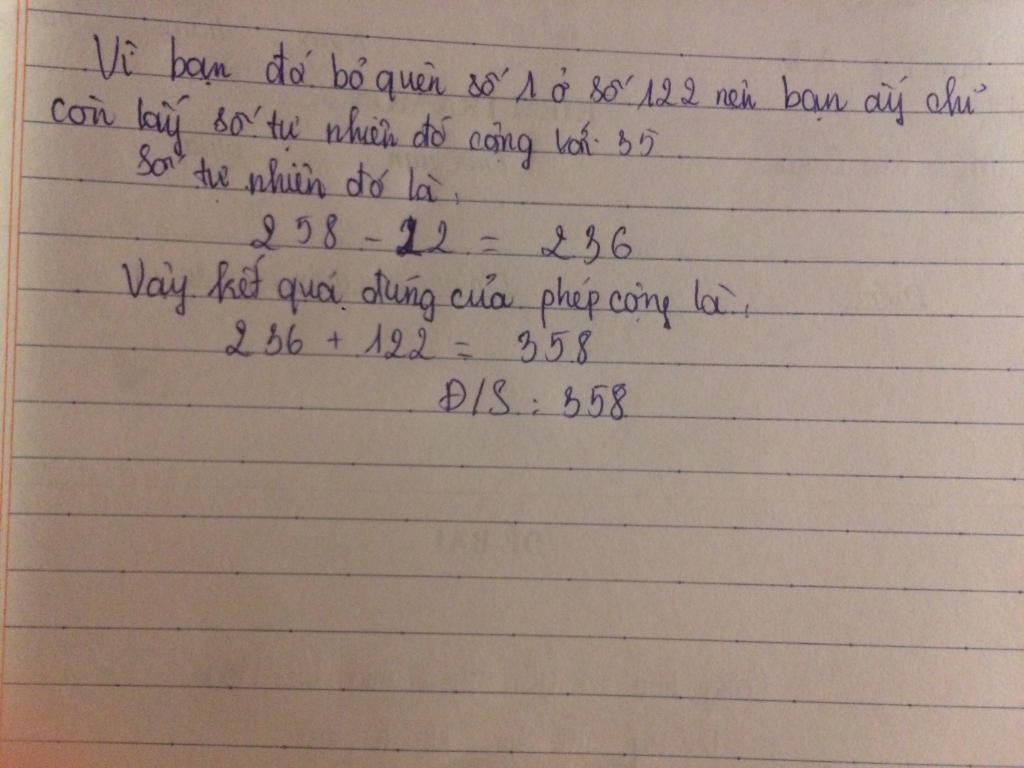 Vì bạn đó bỏ quên số 1 ở số 122 nên bạn ấy chỉ
còn lấy số tự nhiên đó cộng với 35
Số tự nhiên đó là:
258 - 22 = 236
Vậy kết quả đúng của phép cộng là:
236 + 122 = 358
Đ/S : 358